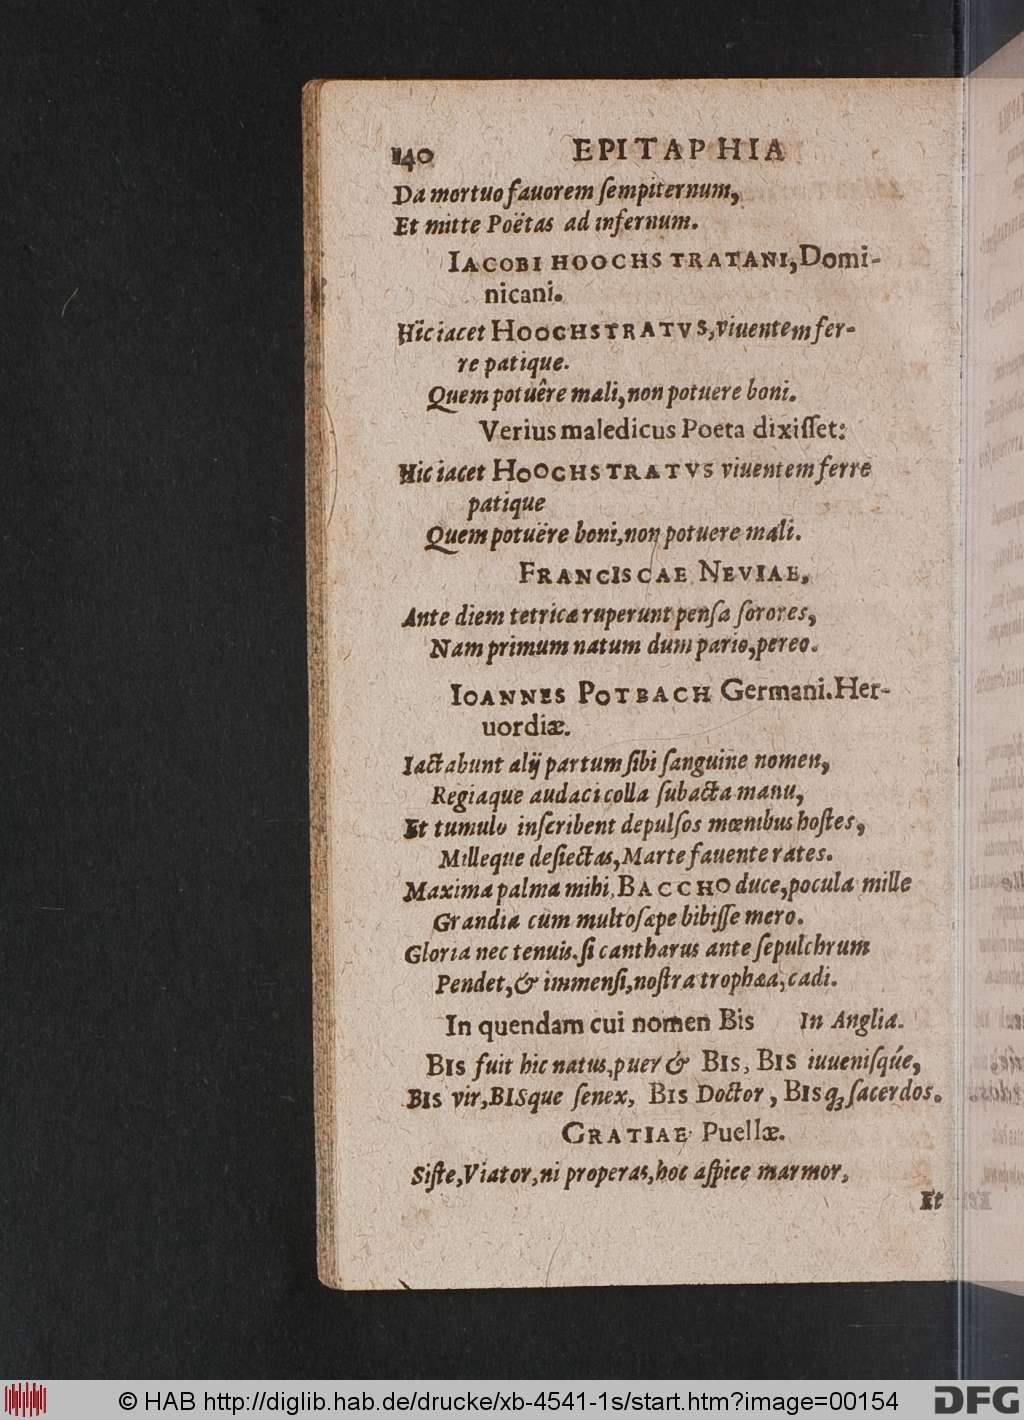 140 EPITAPHIA
Da mortuo fauorem ſempiternum,
Et mitte Poëtas ad infernum.
IACOBI HOOCHSTRATANI, Domi-
nicani.
Hic iacet HOOCHSTRATVS, viuentem fer-
re patique.
Quem potuêre mali, non potuere boni.
Verius maledicus Poeta dixiſſet:
Hic iacet HOOCHSTRATVS viuentem ferre
patique
Quem potuëre boni, non potuere mali.
FRANCISCAE NEVIAE,
Ante diem tetricæ ruperunt penſa ſorores,
Nam primum natum dum pario, pereo.
IOANNES POTBACH Germani. Her-
uordiæ.
Iactabunt alij partum ſibi ſanguine nomen,
Regiaque audaci colla ſubacta manu,
Et tumulo inſcribent depulſos mœnibus hoſtes,
Milleque deſiectas, Marte fauente rates.
Maxima palma mihi, BACCHO duce, pocula mille
Grandia cum multo ſæpe bibiſſe mero.
Gloria nec tenuis. ſi cantharus ante ſepulchrum
Pendet, & immenſi, noſtra trophæa, cadi.
In quendam cui nomen Bis In Anglia.
BIS fuit hic natus, puer & BIS, BIS iuueniſqúe,
BIS vir, BISque ſenex, BIS Doctor, BISqꝫ ſacerdos.
GRATIAE Puellæ.
Siſte, Viator, ni properas, hoc aſpice marmor,
Et
© HAB http://diglib.hab.de/drucke/xb-4541-1s/start.htm?image=00154
DFG